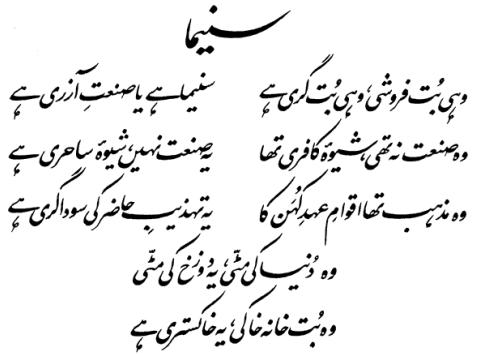 سنیما
وہی بُت فروشی، وہی بُت گری ہے سنیما ہے یا صنعتِ آزری ہے
وہ صنعت نہ تھی، شیوۂ کافری تھا یہ صنعت نہیں، شیوۂ ساحری ہے
وہ مذہب تھا اقوامِ عہدِ کُہَن کا یہ تہذیبِ حاضر کی سوداگری ہے
وہ دُنیا کی مٹّی، یہ دوزخ کی مٹّی
وہ بُت خانہ خاکی، یہ خاکستری ہے